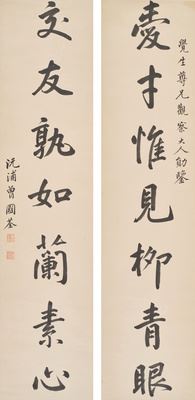 覺生尊兄觀察大人勛鑒
愛才惟見柳青眼
交友孰如蘭素心
沅浦曾國荃